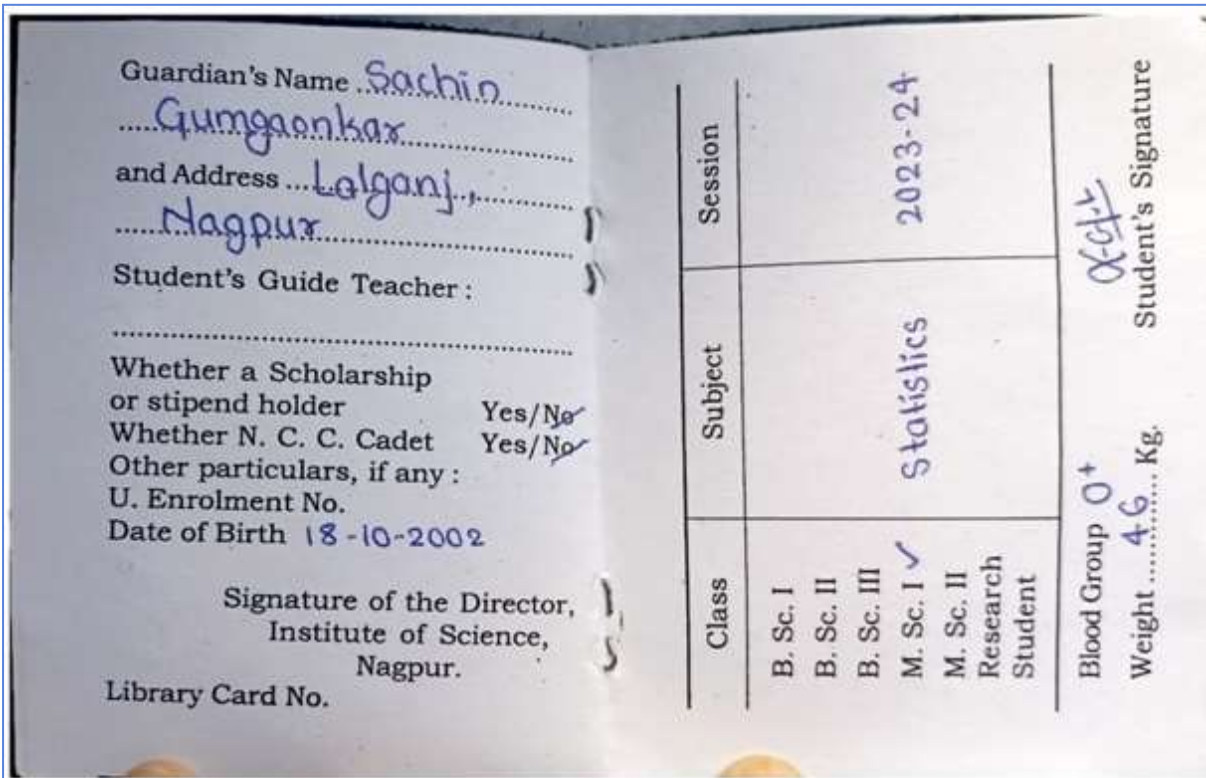 Guardian's Name ..Sachin......
.....Gumgaonkar..............
and Address ....Lalganj.,..........
......Nagpur........................
Student's Guide Teacher :
......................................................
Whether a Scholarship
or stipend holder Yes/No
Whether N. C. C. Cadet Yes/No
Other particulars, if any :
U. Enrolment No.
Date of Birth 18-10-2002
Signature of the Director,
Institute of Science,
Nagpur.
Library Card No.
Class Subject Session
B. Sc. I
B. Sc. II
B. Sc. III
M. Sc. I ✓ Statistics 2023-24
M. Sc. II
Research
Student
Blood Group O+
Weight ....46...... Kg. Student's Signature